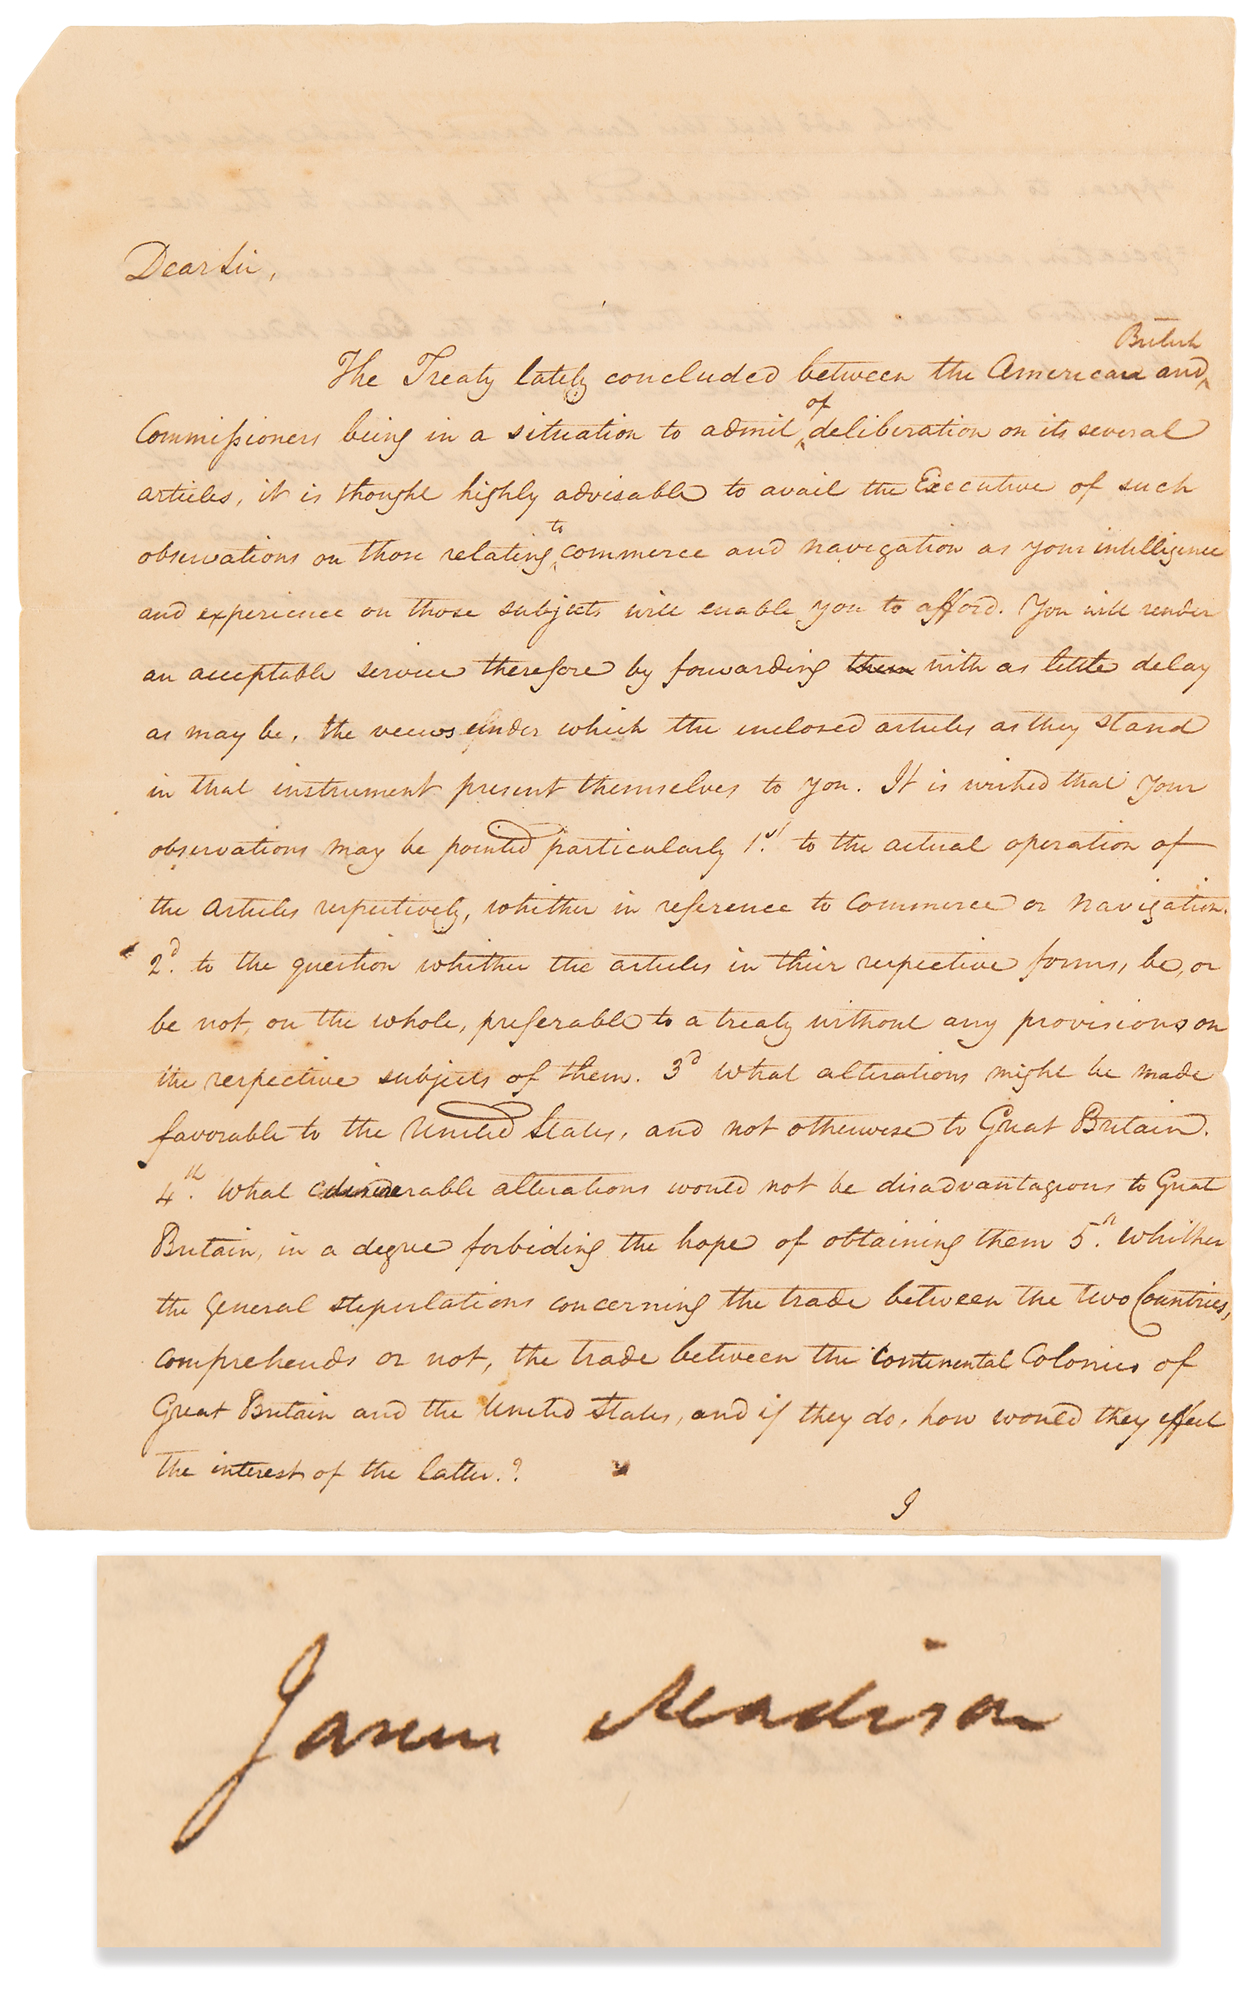 Dear Sir,
British
The Treaty lately concluded between the American and ‸
of
Commissioners being in a situation to admit ‸ deliberation on its several
articles, it is thought highly advisable to avail the Executive of such
to
observations on those relating ‸ commerce and navigation as your intelligence
and experience on those subjects will enable you to afford. You will render
an acceptable service therefore by forwarding them with as little delay
as may be, the views under which the inclosed articles as they stand
in that instrument present themselves to you. It is wished that your
observations may be pointed particularly 1st. to the actual operation of
the articles respectively, whether in reference to Commerce or Navigation.
2d. to the question whether the articles in their respective forms, be, or
be not, on the whole, preferable to a treaty without any provisions on
the respective subjects of them. 3d What alterations might be made
favorable to the United States, and not otherwise to Great Britain.
4th. What desirable alterations would not be disadvantageous to Great
Britain, in a degree forbiding the hope of obtaining them 5th. Whither
the general stipulations concerning the trade between the two Countries,
comprehends or not, the trade between the Continental Colonies of
Great Britain and the United States, and if they do, how would they effect
the interest of the latter.?
I
James Madison